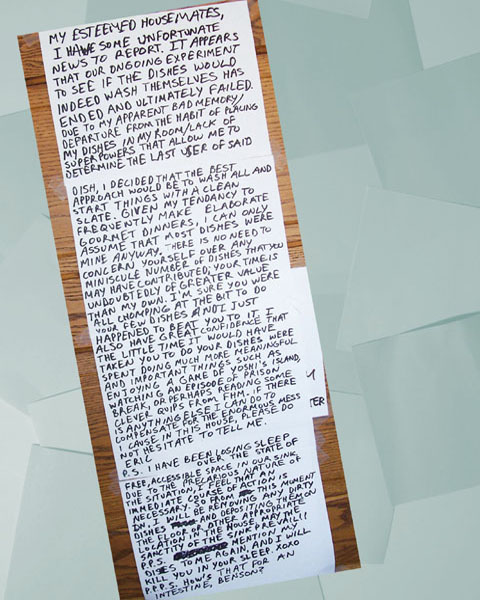 MY ESTEEMED HOUSEMATES,
I HAVE SOME UNFORTUNATE
NEWS TO REPORT. IT APPEARS
THAT OUR ONGOING EXPERIMENT
TO SEE IF THE DISHES WOULD
INDEED WASH THEMSELVES HAS
ENDED AND ULTIMATELY FAILED.
DUE TO MY APPARENT BAD MEMORY/
DEPARTURE FROM THE HABIT OF PLACING
MY DISHES IN MY ROOM/LACK OF
SUPERPOWERS THAT ALLOW ME TO
DETERMINE THE LAST USER OF SAID
DISH, I DECIDED THAT THE BEST
APPROACH WOULD BE TO WASH ALL AND
START THINGS WITH A CLEAN
SLATE. GIVEN MY TENDENCY TO
FREQUENTLY MAKE ELABORATE
GOURMET DINNERS, I CAN ONLY
ASSUME THAT MOST DISHES WERE
MINE ANYWAY. THERE IS NO NEED TO
CONCERN YOURSELF OVER ANY
MINISCULE NUMBER OF DISHES THAT YOU
MAY HAVE CONTRIBUTED; YOUR TIME IS
UNDOUBTEDLY OF GREATER VALUE
THAN MY OWN. I'M SURE YOU WERE
ALL CHOMPING AT THE BIT TO DO
YOUR FEW DISHES AND I JUST
HAPPENED TO BEAT YOU TO IT. I
ALSO HAVE GREAT CONFIDENCE THAT
THE LITTLE TIME IT WOULD HAVE
TAKEN YOU TO DO YOUR DISHES WERE
SPENT DOING MUCH MORE MEANINGFUL
AND IMPORTANT THINGS SUCH AS
ENJOYING A GAME OF YOSHI'S ISLAND,
WATCHING AN EPISODE OF PRISON
BREAK, OR PERHAPS READING SOME
CLEVER QUIPS FROM FHM. IF THERE
IS ANYTHING ELSE I CAN DO TO
COMPENSATE FOR THE ENORMOUS MESS
I CAUSE IN THIS HOUSE, PLEASE DO
NOT HESITATE TO TELL ME.
ERIC
P.S. I HAVE BEEN LOSING SLEEP
OVER THE STATE OF
FREE, ACCESSIBLE SPACE IN OUR SINK.
DUE TO THE PRECARIOUS NATURE OF
THE SITUATION, I FEEL THAT AN
IMMEDIATE COURSE OF ACTION IS
NECESSARY. SO FROM THIS MOMENT
ON, I WILL BE REMOVING ANY DIRTY
DISHES AND DEPOSITING THEM ON
THE FLOOR OR OTHER APPROPRIATE
LOCATION IN THE HOUSE. MAY THE
SANCTITY OF THE SINK PREVAIL!!
P.P.S. MENTION ANY
DISHES TO ME AGAIN, AND I WILL
KILL YOU IN YOUR SLEEP. XOXO
P.P.P.S. HOW'S THAT FOR AN
INTESTINE, BENSON?
TER